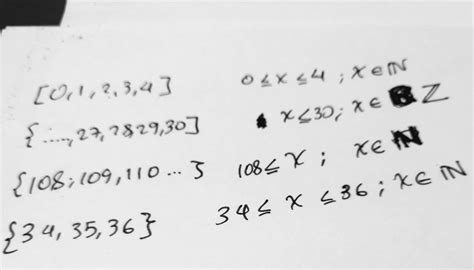 [0,1,2,3,4] 0≤x≤4 ; x∈ℕ
{....,27,2829,30] x≤30; x∈ ℤ
{108;109,110...} 108≤x ; x∈ℕ
{34,35,36} 34≤x≤36 ; x∈ℕ